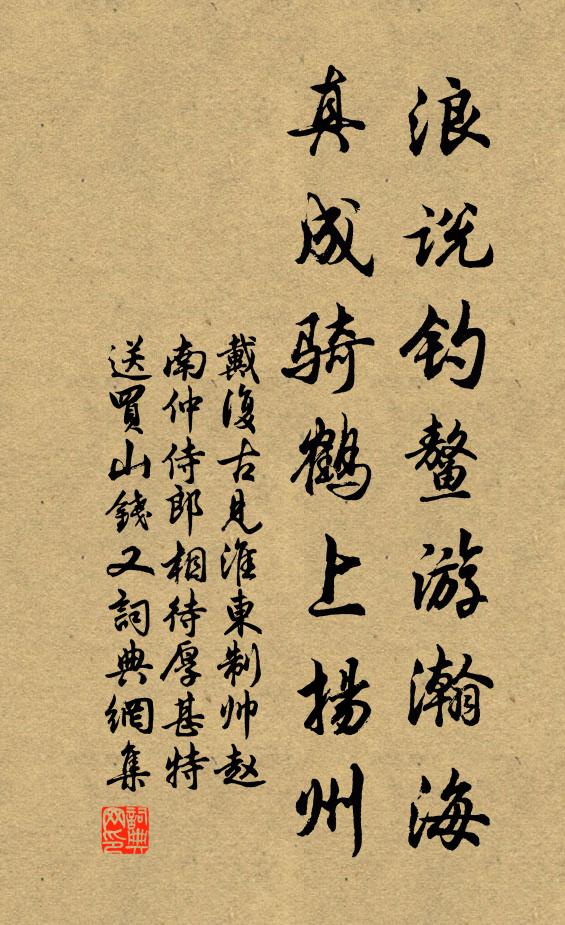 浪说钓鳌游瀚海
真成骑鹤上揚州
戴復古見淮東制帅赵
南仲侍郎相待厚甚特
送買山錢又詞典網集
詞典网印